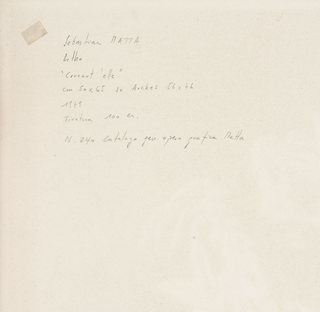 Sebastian MATTA
Litho
cm 50x65 su Arches 56x76
1971
Tiratura 100 es.
N. 240 Catalogo per opera grafica Matta